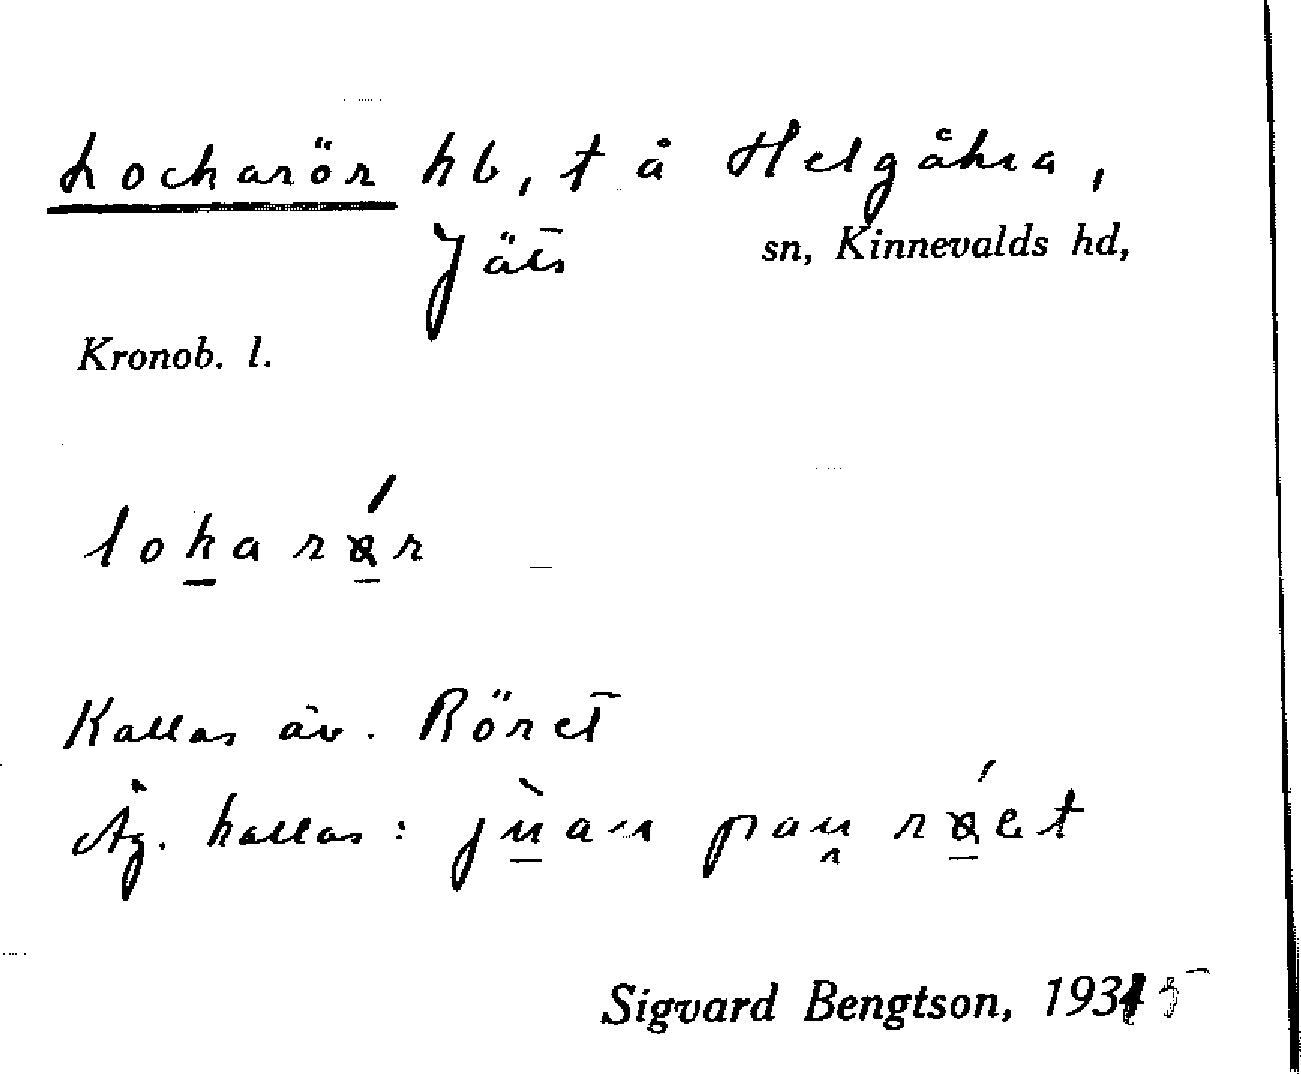 Lockarör hb, t å Helgåkra,
Jäts sn, Kinnevalds hd,
Kronob. l.
lokarǿr
Kallas äv. Röret
Äg. kallas: jùan pau røet
Sigvard Bengtson, 1935